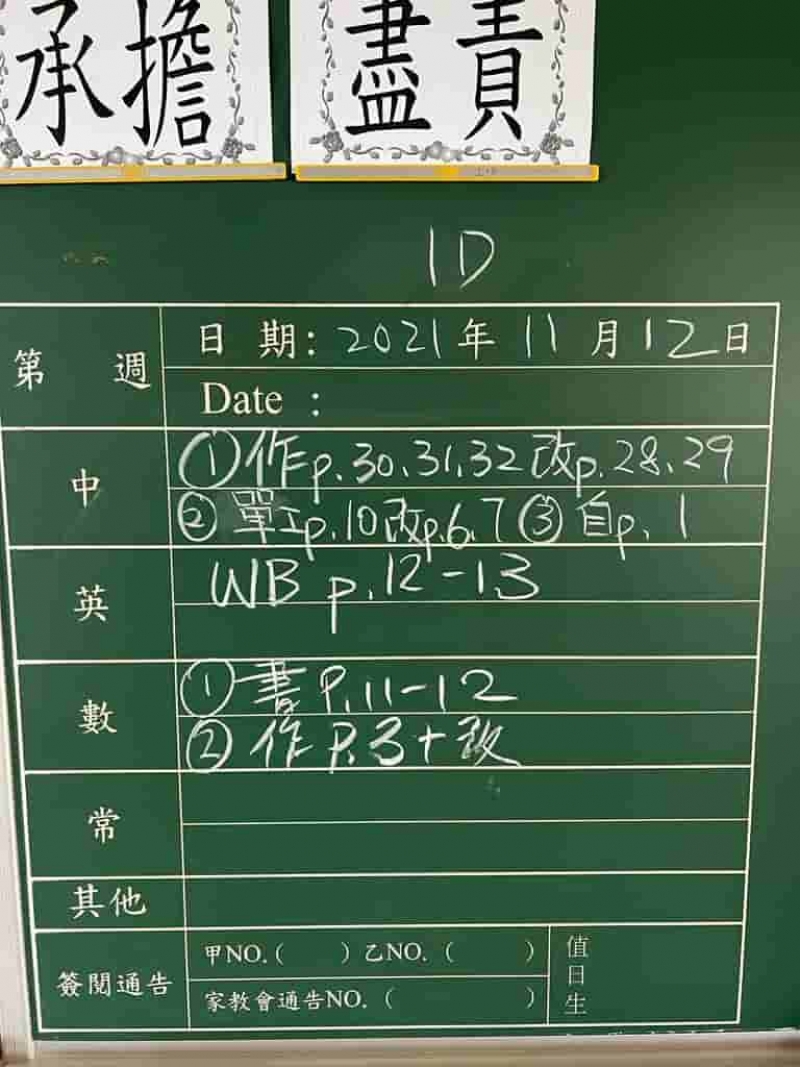 承擔 盡責
1D
第 週
日 期: 2021年 11 月 12 日
Date :
中
①作p.30、31、32改p.28、29
②單工p.10改p.6、7③自p.1
英
WB p.12-13
數
①書P.11-12
②作P.3+改
常
其他
簽閱通告
甲NO.( )乙NO.( )
家教會通告NO.( )
值日生